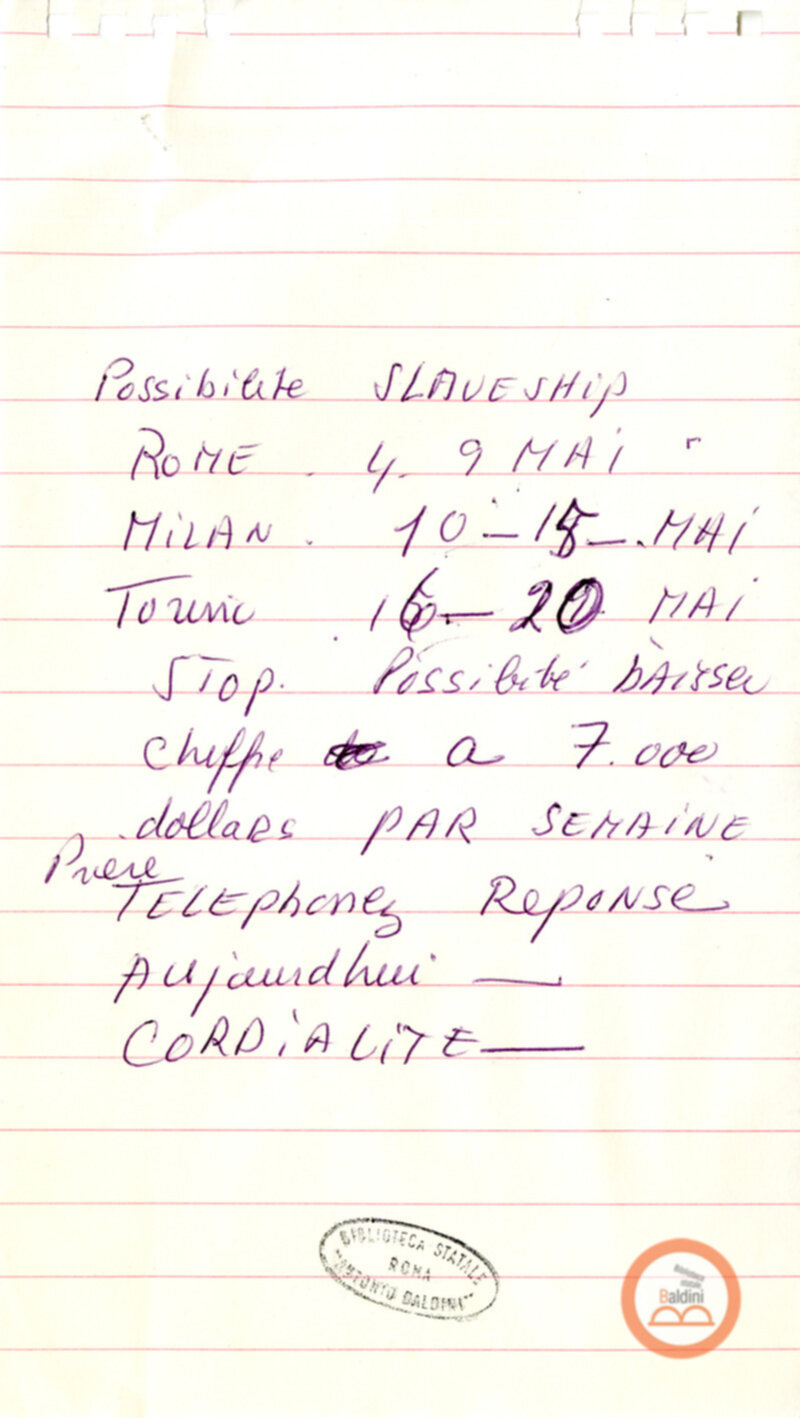 Possibilité SLAVESHIP
ROME . 4. 9 MAI "
MILAN . 10 - 15 - . MAI
Torino . 16 - 20 MAI
STOP. Possibilité bAisser
cheffre a 7.000
dollars PAR SEMAINE
Prière
TELEphonez RepoNse
Aujourdhui —
CORDIALITE —
BIBLIOTECA STATALE
ROMA
"ANTONIO BALDINI"
Biblioteca
statale
Baldini